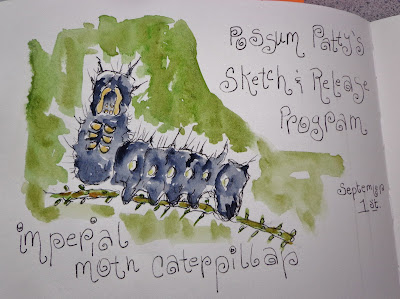 Possum Patty's
Sketch & Release
Program
September
1st.
imperial
moth caterpillar